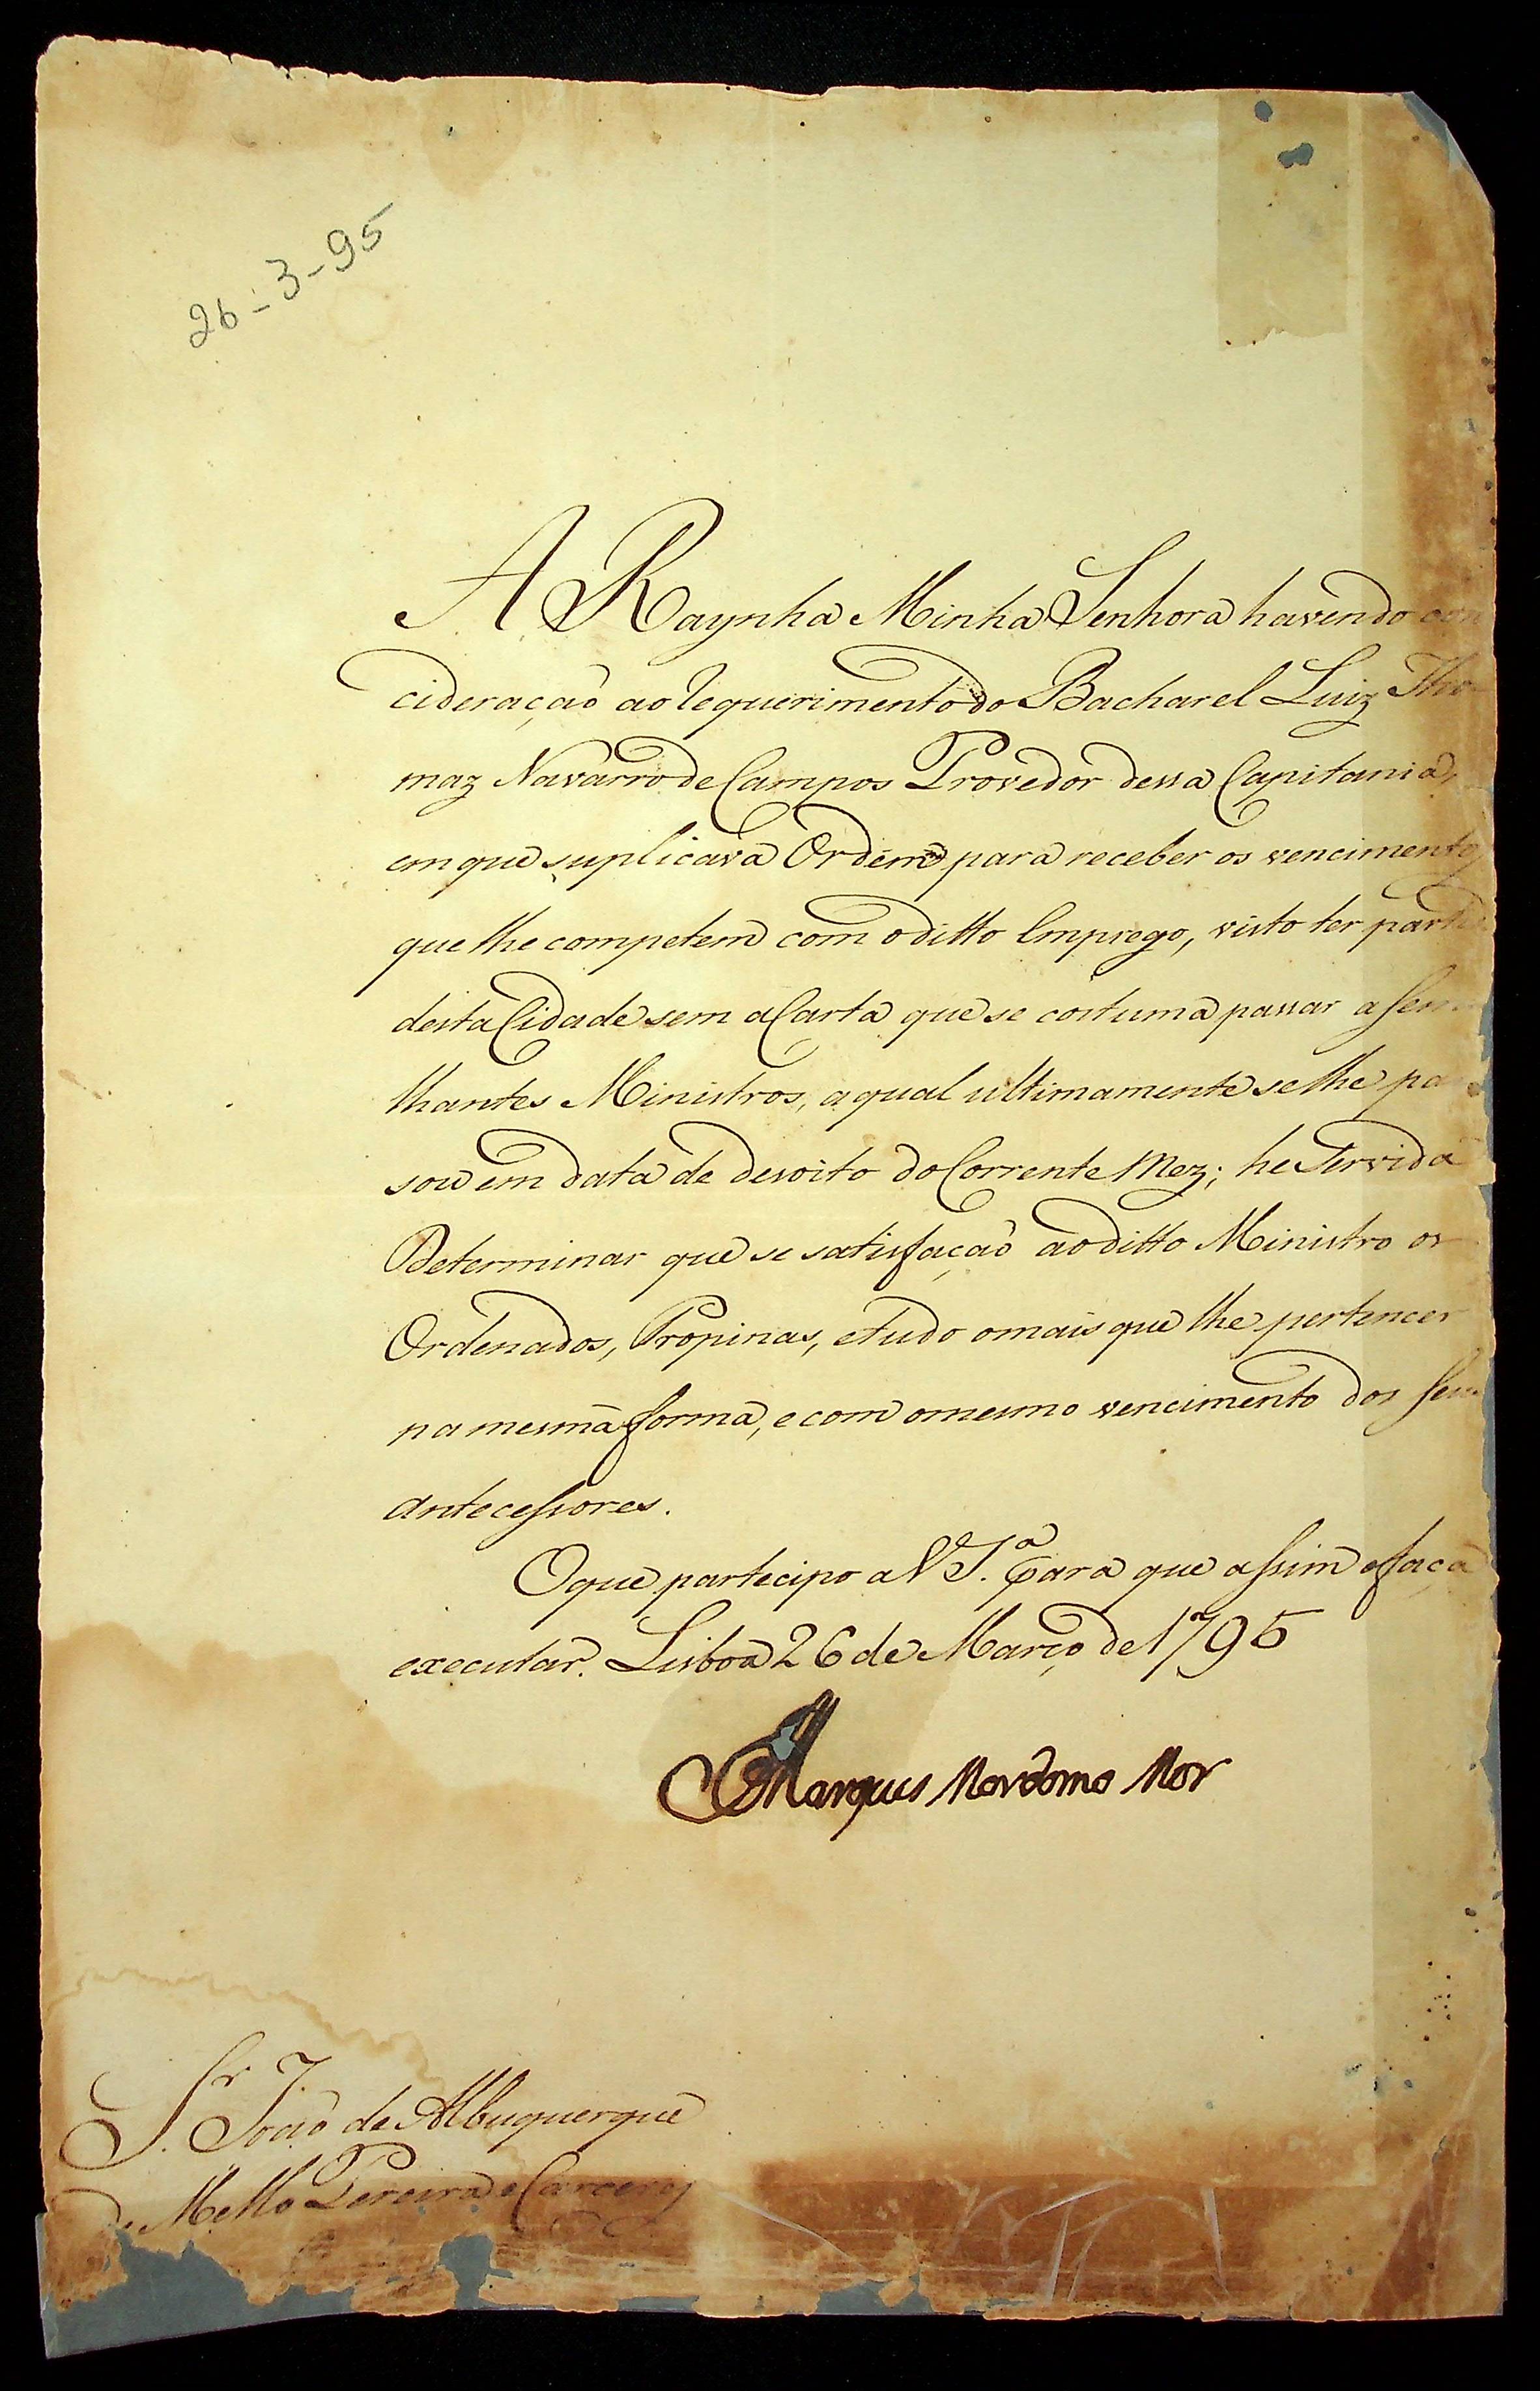 26-3-95
A Raynha Minha Senhora havendo con
cideração ao requerimento do Bacharel Luiz Tho-
maz Navarro de Campos Provedor dessa Capitania,
em que suplicava Ordem para receber os vencimentos
que lhe competem com o ditto Emprego, visto ter parti
desta Cidade sem a Carta que se costuma passar a Sem
lhantes Ministros, a qual ultimamente se lhe pa
sou em data de desoito do Corrente Mez; he Servida
Determinar que se satisfação ao ditto Ministro os
Ordenados, Propinas, e tudo o mais que lhe pertencer
na mesma forma, e com o mesmo vencimento dos Seus
Antecessores.
O que partecipo a V S.ª para que assim o faça
executar. Lisboa 26 de Março de 1795
Marques Mordomo Mor
Sr. João de Albuquerque
de Mello Pereira e Caceres